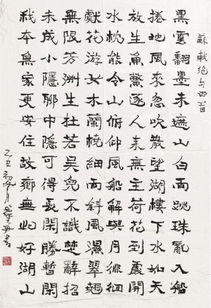 蘇軾絕句四首
黑雲翻墨未遮山白雨跳珠亂入船
捲地風來忽吹散望湖樓下水如天
放生魚鱉逐人來無主荷花到處開
水枕能令山俯仰風船解與月徘徊
獻花游女木蘭橈細雨斜風濕翠翹
無限芳洲生杜若吳兒不識楚辭招
未成小隱聊中隱可得長閒勝暫閒
我本無家更安往故鄉無此好湖山
乙丑